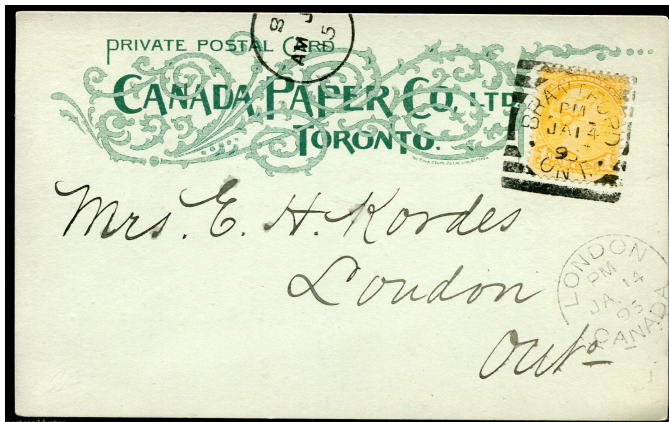 B
AM J
5
PRIVATE POSTAL CARD
CANADA PAPER CO. LTD
TORONTO.
BRANTFORD
PM
JA 14
95
ONT.
Mrs. E. H. Kordes
London
Onto
LONDON
PM
JA. 14
95
CANADA